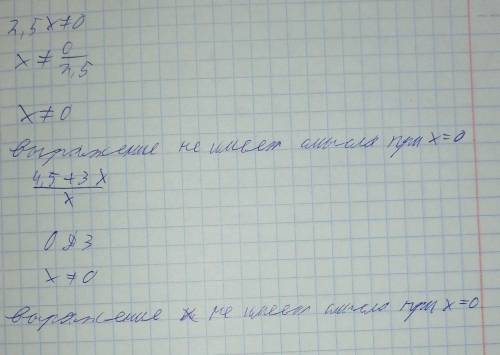 2,5x≠0
x ≠ 0/2,5
x≠0
выражение не имеет смысла при x=0
4,5+3x/x
ОДЗ
x≠0
выражение не имеет смысла при x=0